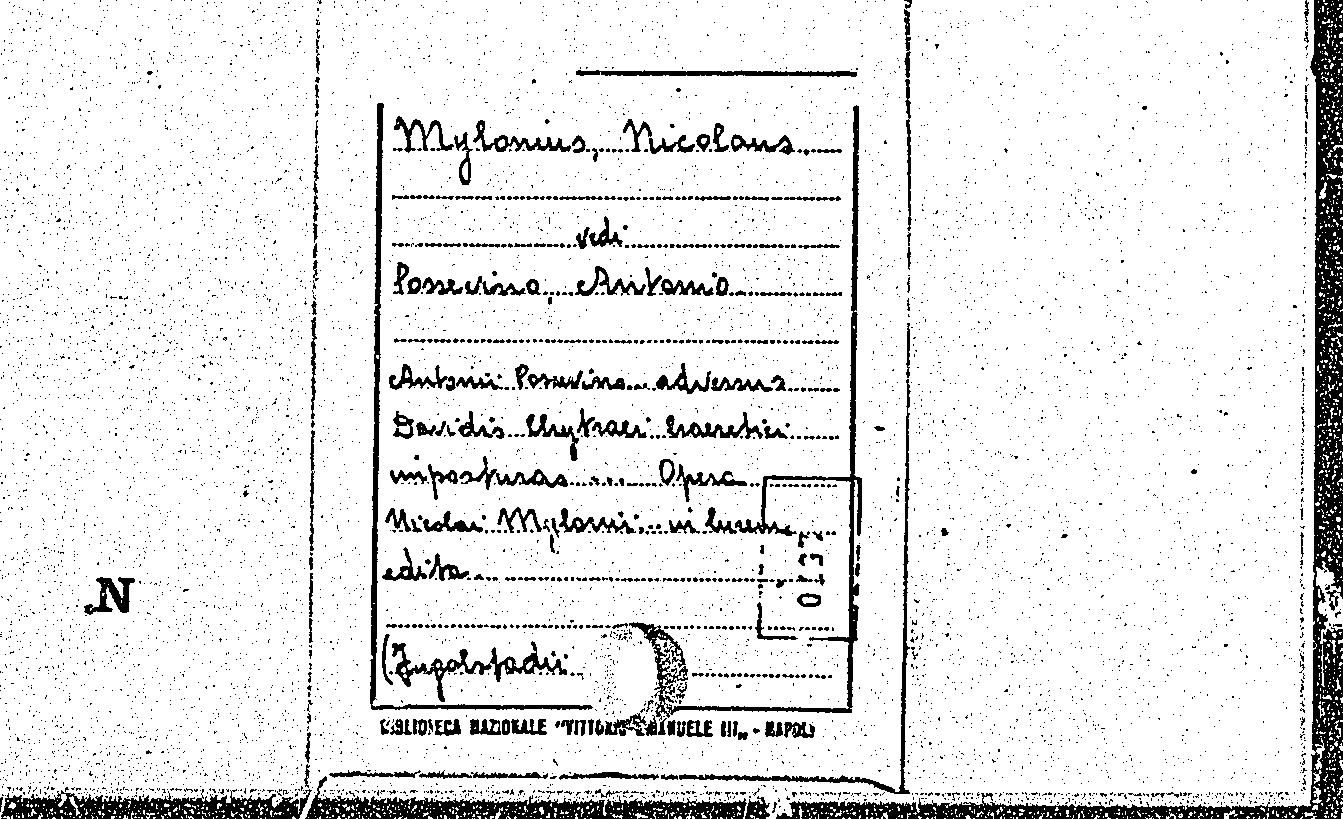 Mylonius, Nicolaus.
vedi
Possevino, Antonio
Antonii Possevino... adversus
Davidis Chytraei haeretici
imposturas ... Opera
Nicolai Mylonii... in lucem
edita
(Ingolstadii
0137
BIBLIOTECA NAZIONALE "VITTORIO EMANUELE III„ - NAPOLI
N